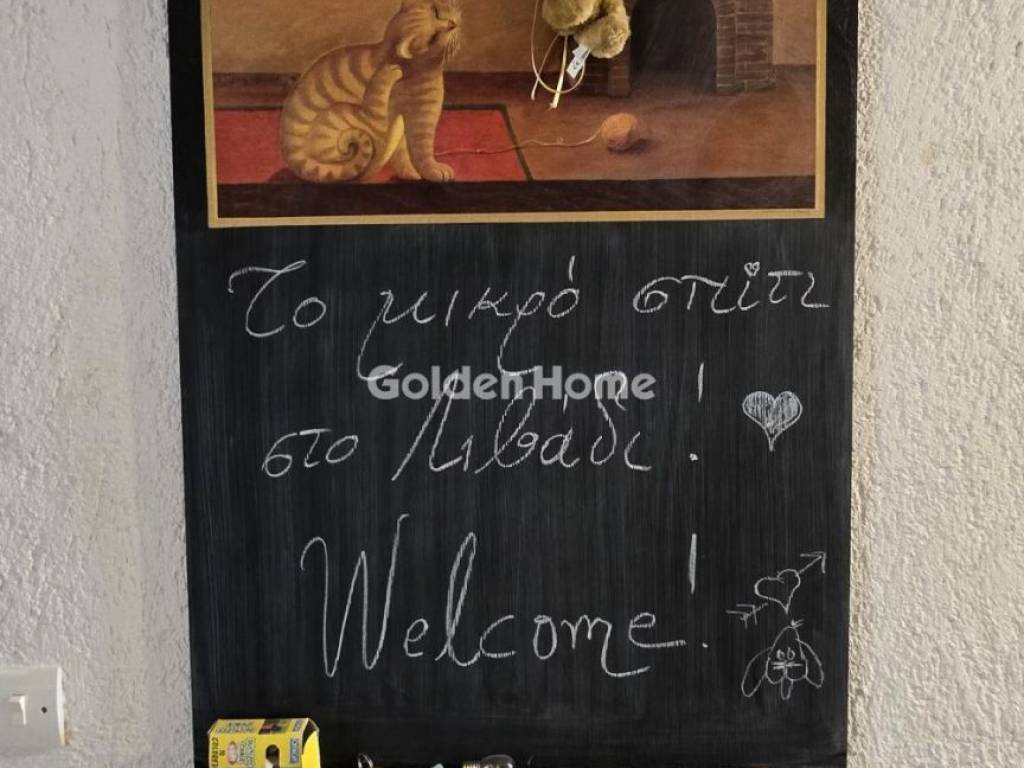 Το μικρό σπίτι
Golden Home
στο Λιβάδι!
Welcome!